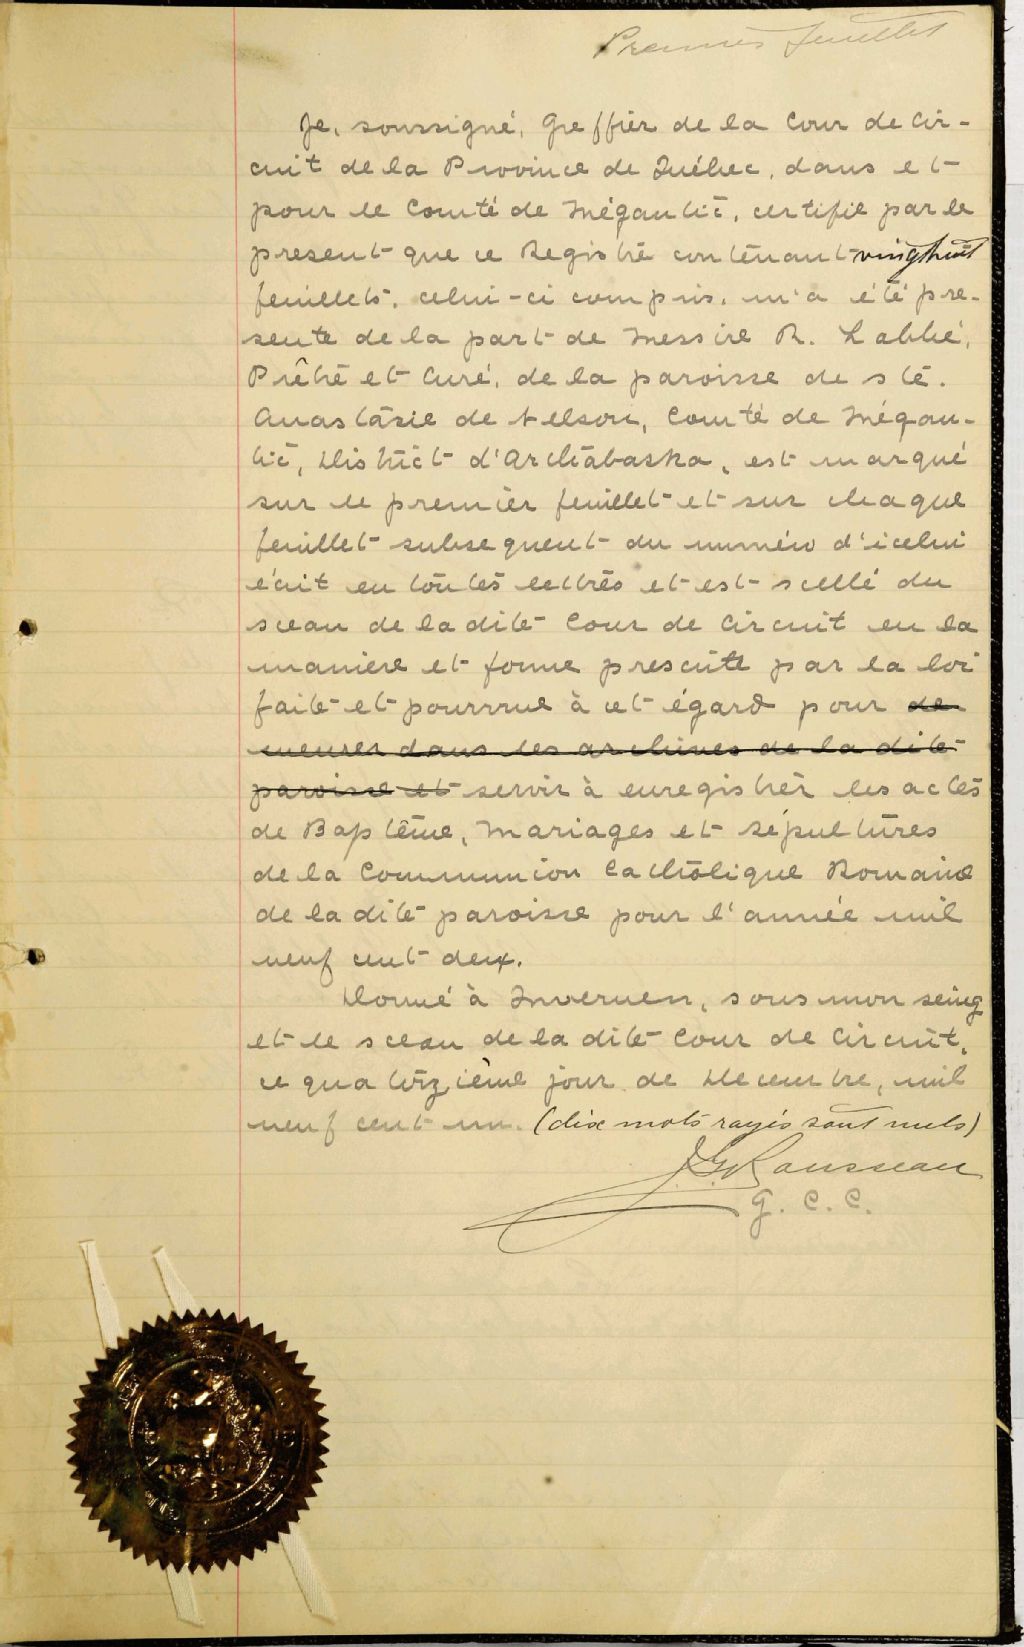 Premier feuillet
Je, soussigné, Greffier de la Cour de Cir-
cuit de la Province de Québec, dans et
pour le Comté de Mégantic, certifie par le
present que ce Registre contenant vingthuit
feuillets, celui-ci compris, m'a été pre-
sente de la part de Messire R. Labbé,
Prêtre et Curé, de la paroisse de Ste.
Anastasie de Nelson, Comté de Mégan-
tic, District d'Arthabaska, est marqué
sur le premier feuillet et sur chaque
feuillet subsequent du numéro d'icelui
écrit en toutes lettres et est scellé du
sceau de la dite Cour de Circuit en la
manière et forme prescrite par la loi
faite et pourvue à cet égard pour de
meurer dans les archives de la dite
paroisse et servir à enregistrer les actes
de Baptême, Mariages et Sépultures
de la Communion Catholique Romaine
de la dite paroisse pour l'année mil
neuf cent deux.
Donné à Inverness, sous mon seing
et le sceau de la dite Cour de Circuit,
ce quatorzième jour de Decembre, mil
neuf cent un. (dix mots rayés sont nuls)
J. G. Rousseau
G. C. C.